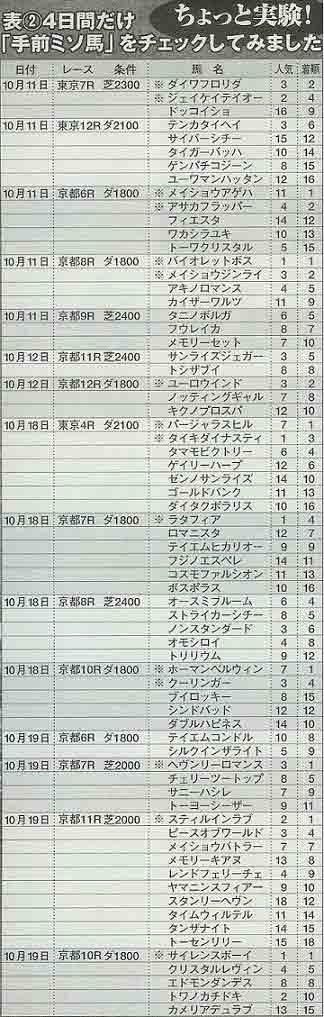 表②4日間だけ ちょっと実験!
「手前ミソ馬」をチェックしてみました
日付 レース 条件 馬名 人気 着順
10月11日 東京7R 芝2300 ※ダイワフロリダ 3 2
※ジェイケイテイオー 2 4
ドッコイショ 16 9
10月11日 東京12R ダ2100 テンカタイヘイ 3 6
サイバーシチー 15 12
タイガーバッハ 10 14
ゲンパチコジーン 8 15
ユーワマンハッタン 12 16
10月11日 京都6R ダ1800 ※メイショウアゲハ 11 1
※アサカフラッパー 4 2
フィエスタ 14 12
ワカシラユキ 10 13
トーワクリスタル 5 15
10月11日 京都8R ダ1800 ※バイオレットボス 1 1
※メイショウジンライ 3 2
アキノロマンス 4 5
カイザーワルツ 11 9
10月11日 京都9R 芝2400 タニノボルガ 6 5
フウレイカ 8 7
メモリーセット 7 10
10月12日 京都11R 芝2400 サンライズジェガー 3 5
トシザブイ 8 8
10月12日 京都12R ダ1800 ※ユーロウインド 3 2
ノッティングギャル 7 8
キクノプロスパ 12 10
10月18日 東京4R ダ2100 ※バージャラスヒル 7 1
※タイキダイナスティ 1 3
タマモビクトリー 6 4
ゲイリーハープ 12 6
ゼンノサンライズ 14 10
ゴールドバンク 11 13
ダイタクポラリス 10 16
10月18日 京都7R ダ1800 ※ラタフィア 1 4
ロマニスタ 12 7
テイエムヒカリオー 9 9
フジノエスペレ 14 11
コスモファルシオン 11 13
ボスポラス 10 16
10月18日 京都8R 芝2400 オースミブルーム 6 4
ストライカーシチー 8 5
ノンスタンダード 3 6
オモシロイ 4 8
トリリウム 9 12
10月18日 京都10R ダ1800 ※ホーマンベルウィン 7 1
※クーリンガー 3 4
ブイロッキー 8 15
シンドバッド 12 12
ダブルハピネス 14 10
10月19日 京都6R ダ1800 テイエムコンドル 10 8
シルクインザライト 5 9
10月19日 京都7R 芝2000 ※ヘヴンリーロマンス 3 1
チェリーツートップ 8 5
サニーハシレ 7 9
トーヨーシーザー 9 11
10月19日 京都11R 芝2000 ※スティルインラブ 2 1
ピースオブワールド 3 4
メイショウバトラー 7 7
メモリーキアヌ 13 8
レンドフェリーチェ 4 9
ヤマニンスフィアー 9 10
スタンリーヘヴン 18 12
タイムウィルテル 11 14
タンザナイト 14 15
トーセンリリー 15 18
10月19日 京都10R ダ1800 ※サイレンスボーイ 1 1
クリスタルレヴィン 4 5
エドモンダンデス 8 8
トワノカチドキ 2 10
カメリアデュラブ 13 15